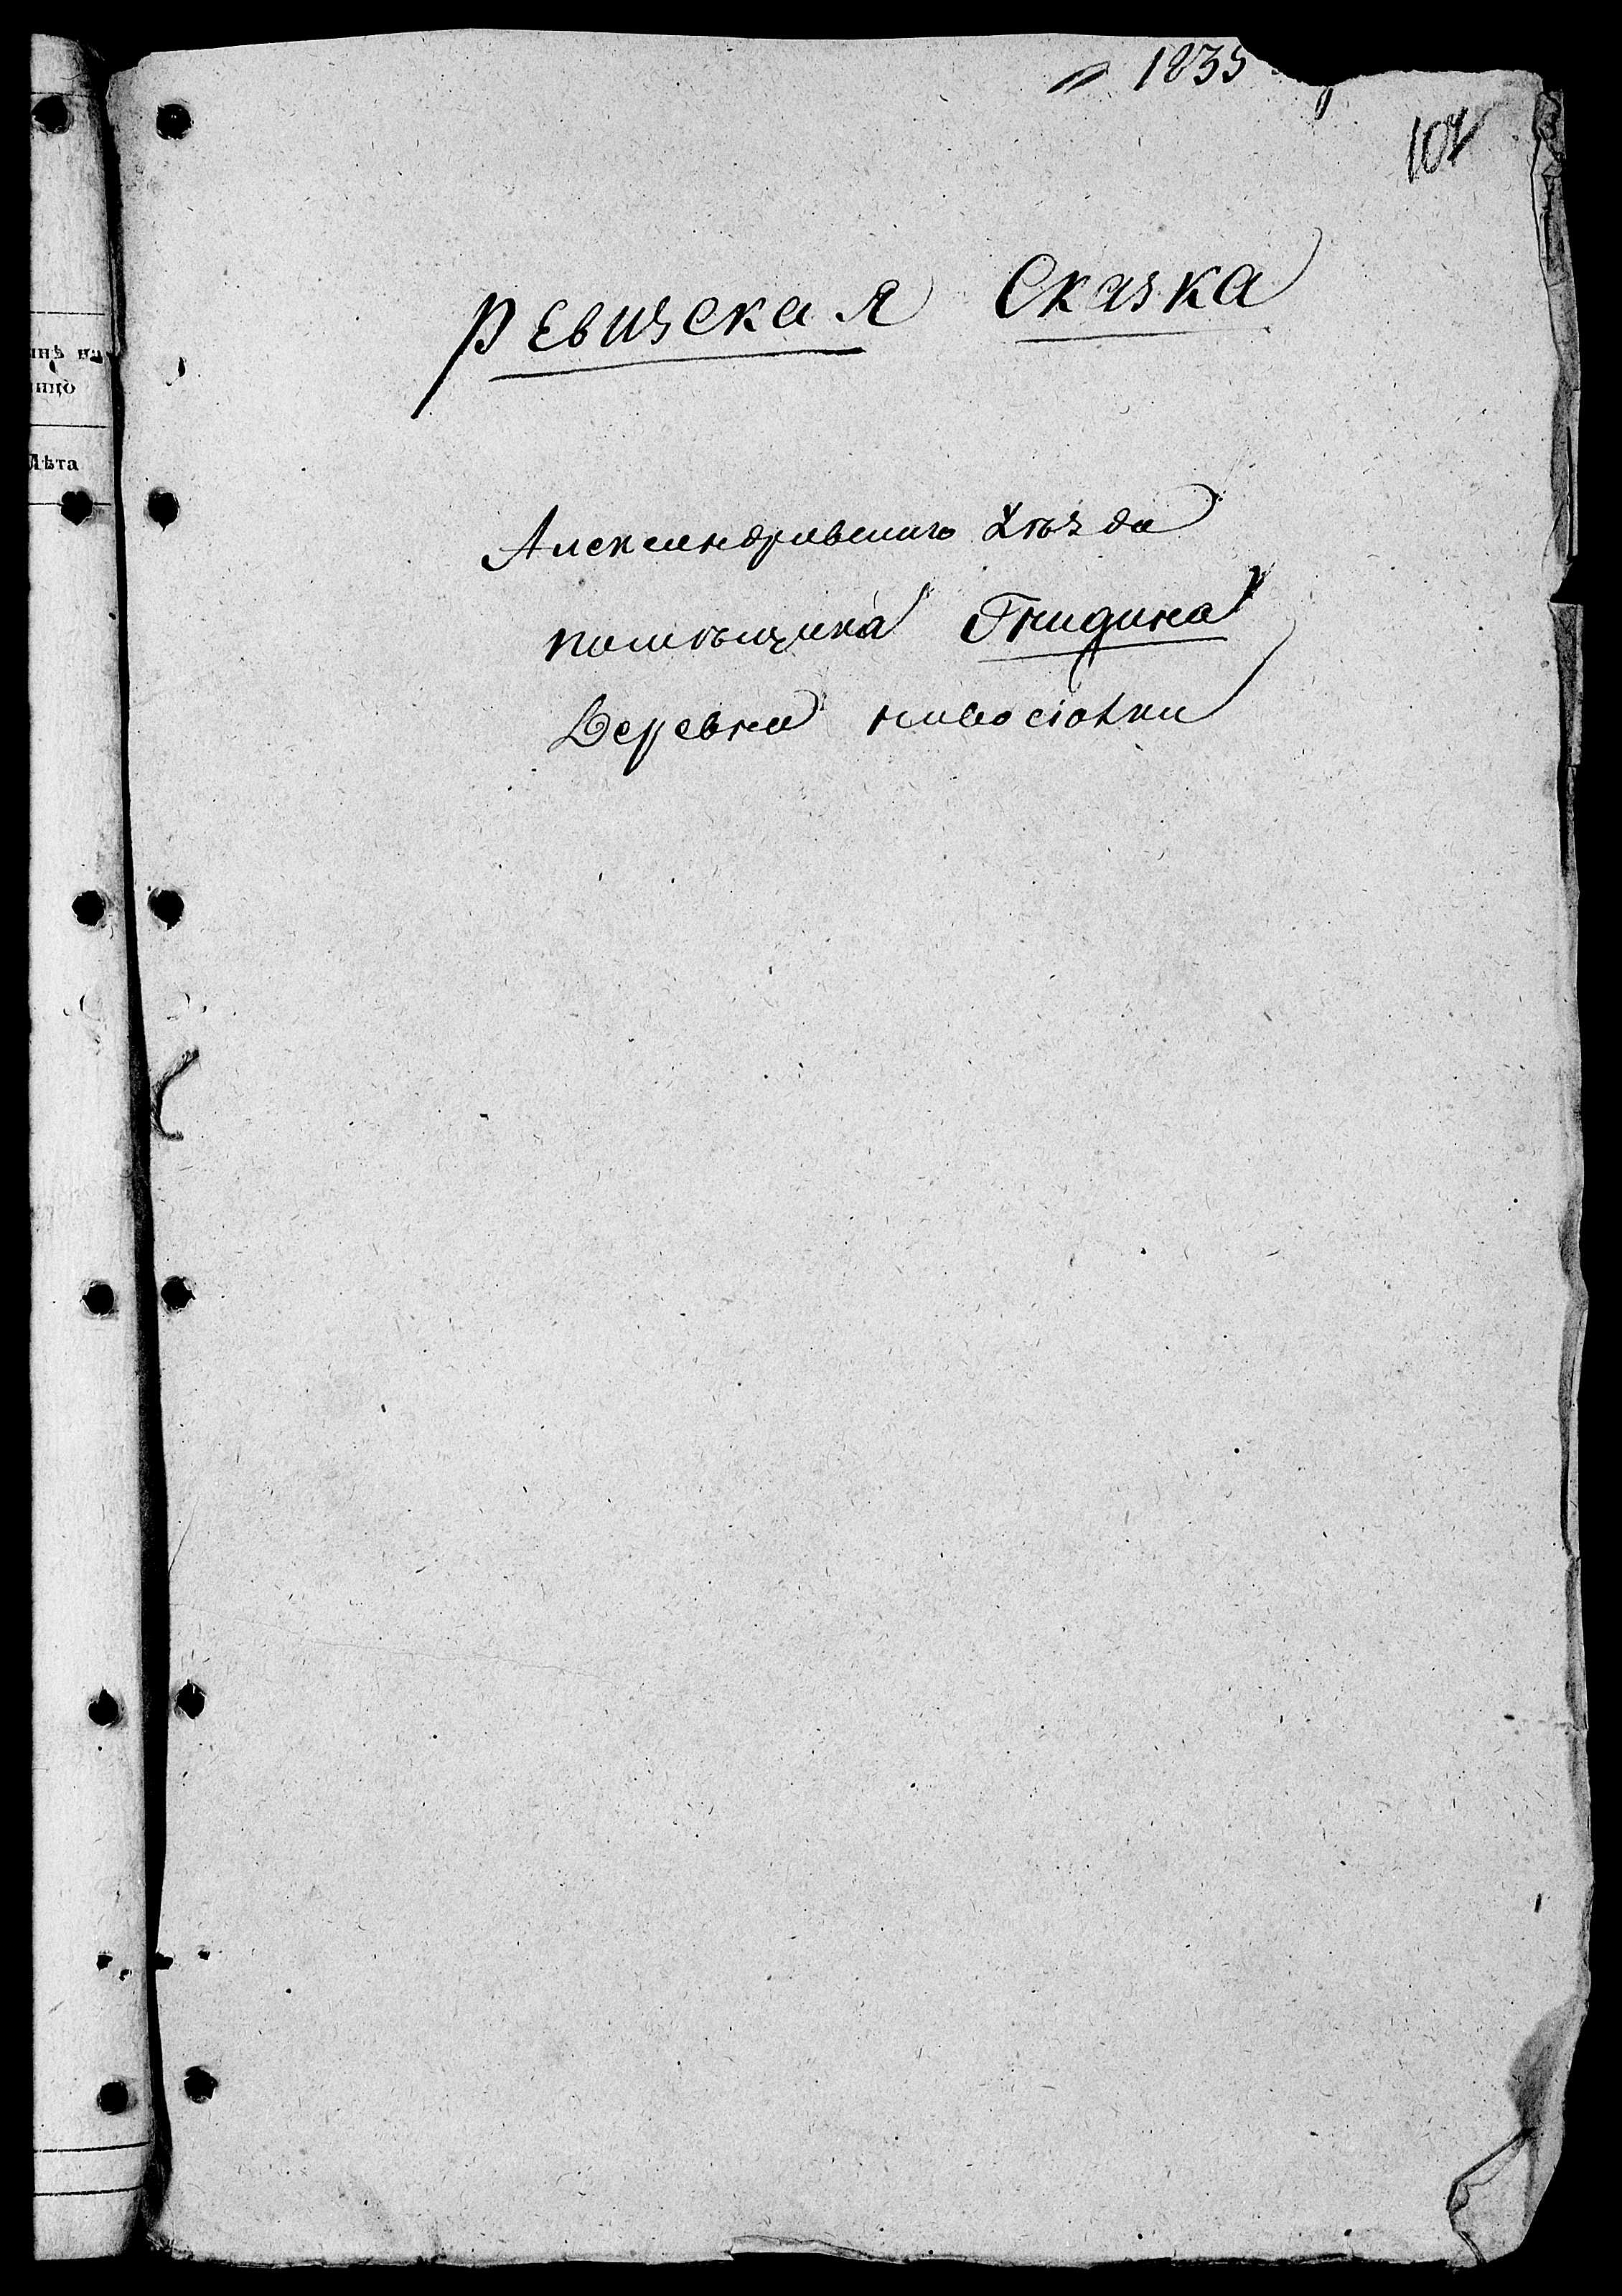 1835
101
Ревизская Сказка
Александровскаго Уѣзда
помѣщика Гнидина
Деревни
инѣ на
лицо
Лѣта